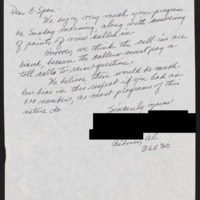 Dear C-Span
We enjoy very much your program
on Sunday morning along with
of points of view called in.
However, we think the call-ins are
biased, because the callers must pay a
toll calls to
We believe there would be much
less bias in this respect if you had an
800 number, as most programs of this
nature do.
Sincerely yours
Auburn, AL
36830